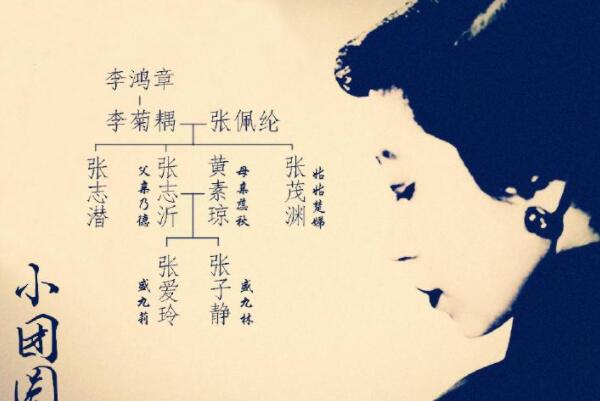 李鸿章
李菊耦
张佩纶
张志潜
张志沂
父亲乃德
黄素琼
母亲蕊秋
张茂渊
姑姑楚娣
张爱玲
盛九莉
张子静
盛九林
小团圆